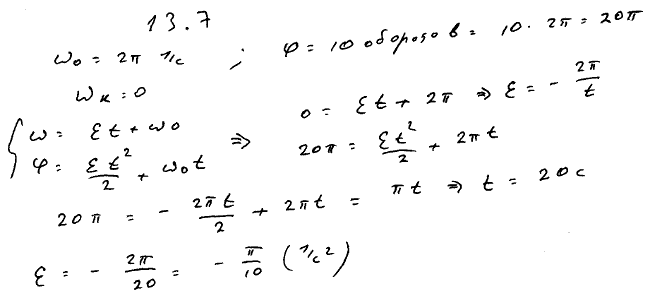 13.7
ω₀ = 2π 1/с ; φ = 10 оборотов = 10 · 2π = 20π
ωк = 0
{ ω = εt + ω₀ ⇒ 0 = εt + 2π ⇒ ε = - 2π/t
φ = εt²/2 + ω₀t 20π = εt²/2 + 2πt
20π = - 2πt/2 + 2πt = πt ⇒ t = 20с
ε = - 2π/20 = - π/10 (1/с²)